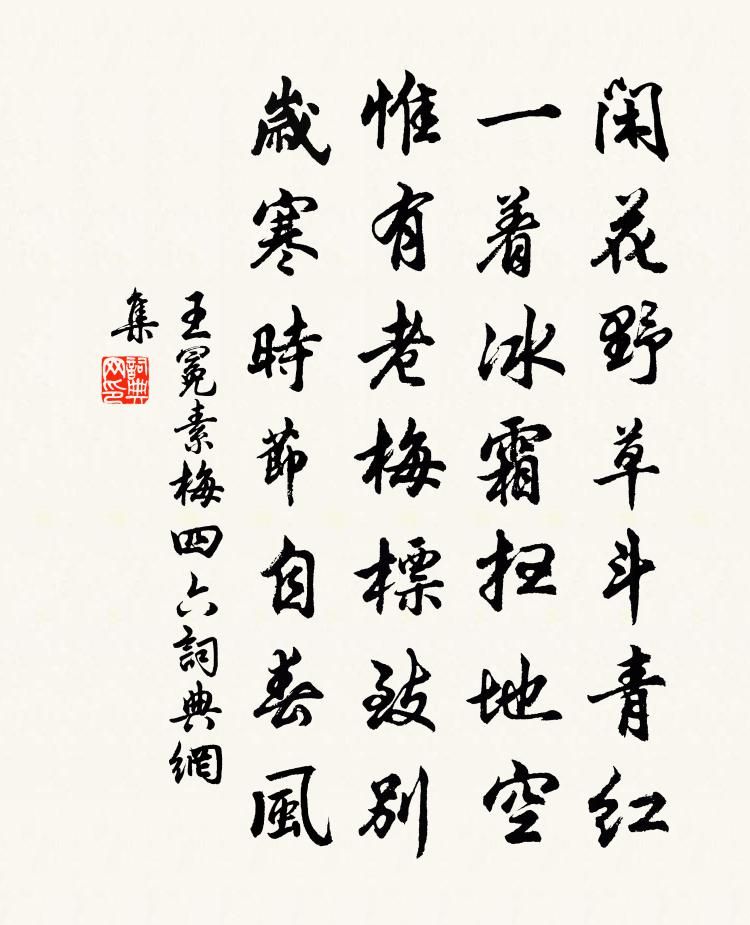 閑花野草斗青紅
一着冰霜扫地空
惟有老梅標致別
歲寒時節自春風
王冕素梅四六詞典網
集
詞典網印